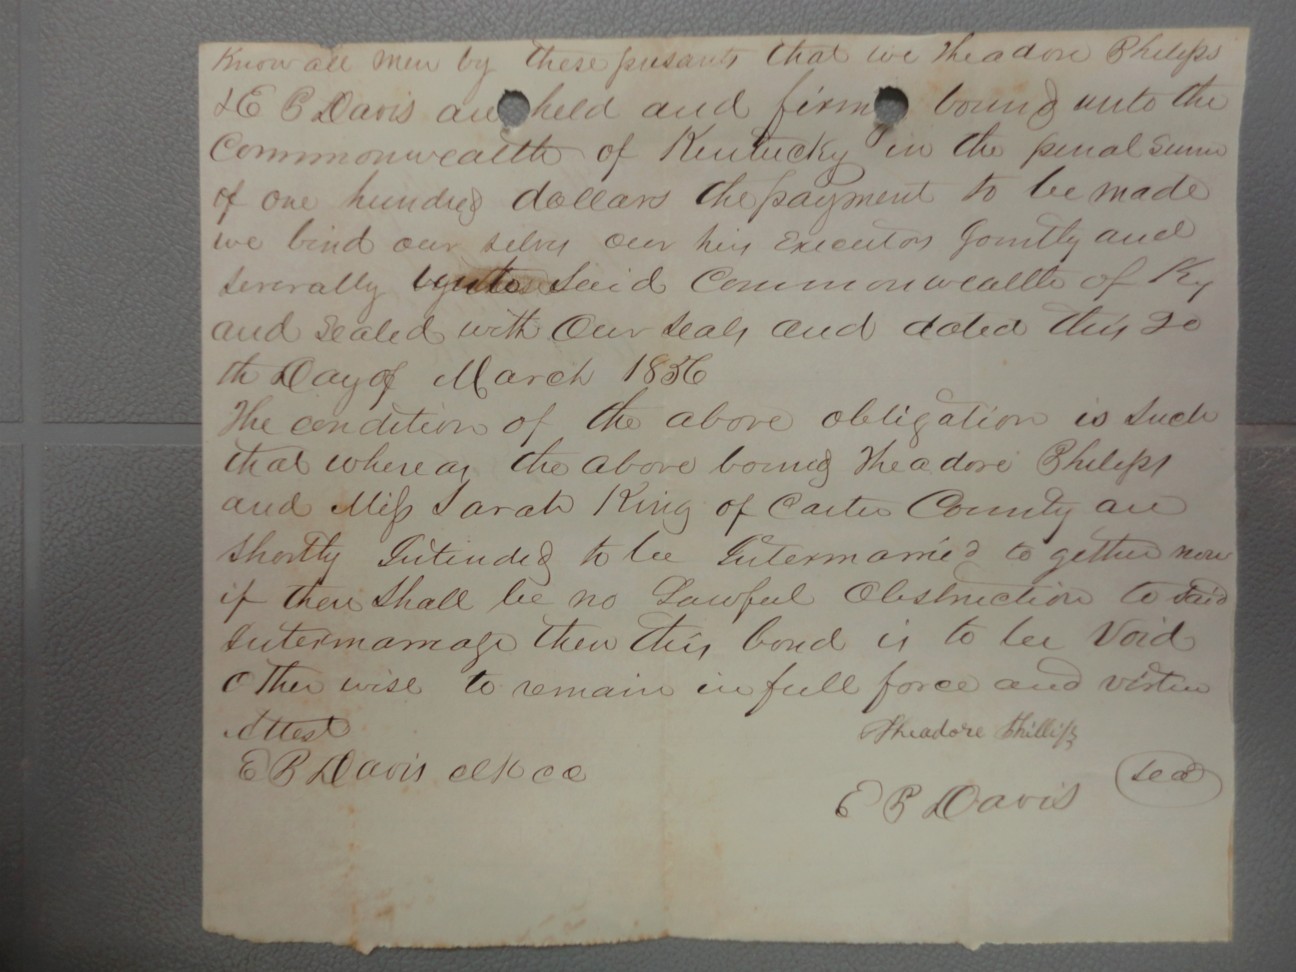 Know all men by these presants that we Theadore Philips
& E P Davis are held and firm bound unto the
Commonwealth of Kentucky in the penal sum
of one hundred dollars the payment to be made
we bind our selvs our hirs Executors Jointly and
severally unto said Commonwealth of Ky
and sealed with our seals and dated this 20
th Day of March 1856
The condition of the above obligation is such
that where as the above bound Theadore Philips
and Miss Sarah King of Carter County are
shortly Intended to be Intermarried to gether now
if there shall be no Lawful Obstruction to said
Intermarriage then this bond is to be Void
other wise to remain in full force and virtue
Attest
Theadore Phillips
E P Davis clk cc
seal
E P Davis